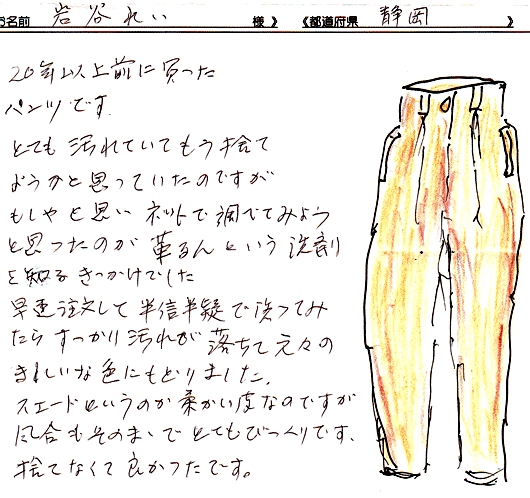 お名前 岩谷れい 様 》 《都道府県 静岡 》
20年以上前に買った
パンツです.
とても汚れていてもう捨て
ようかと思っていたのですが
もしやと思いネットで調べてみよう
と思ったのが革るんという洗剤
を知るきっかけでした
早速注文して半信半疑で洗ってみ
たらすっかり汚れが落ちて元々の
きれいな色にもどりました.
スエードというのか柔かい皮なのですが
風合もそのまゝでとてもびっくりです、
捨てなくて良かったです。